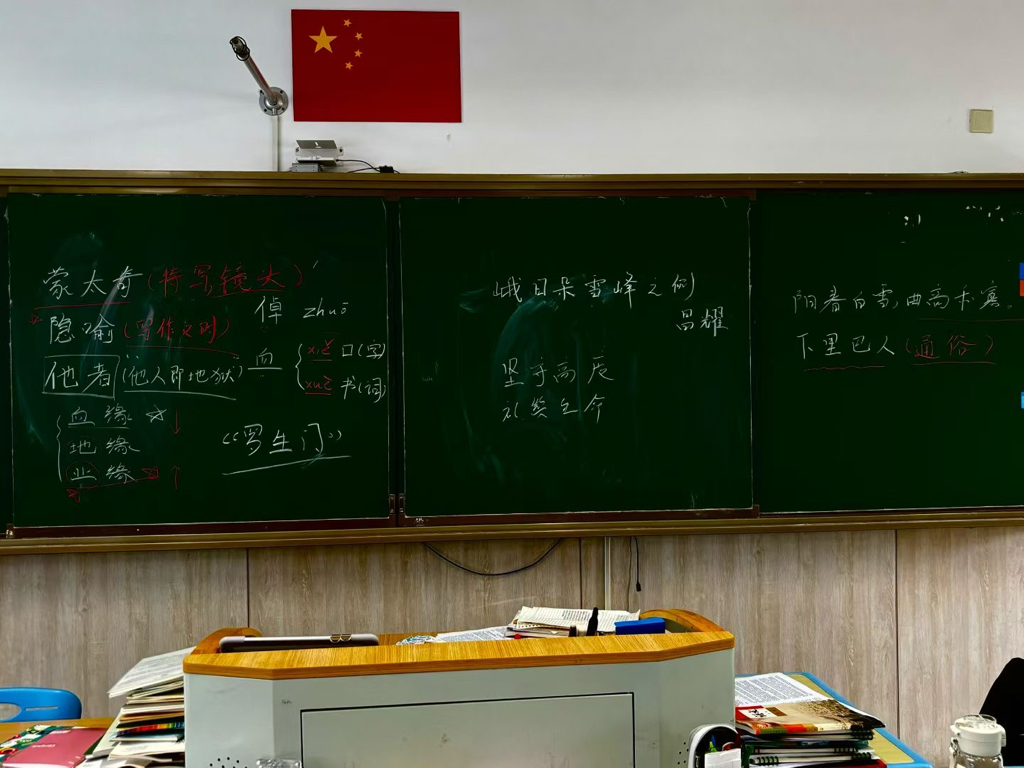 蒙太奇(特写镜头)
倬 zhuō
隐喻(写作之时)
他者(他人即地狱)
血 xiě 口(字)
xuè 书(词)
血缘
地缘
业缘
《罗生门》
峨日朵雪峰之侧
昌耀
坚于高辰
礼赞生命
阳春白雪,曲高和寡
下里巴人(通俗)